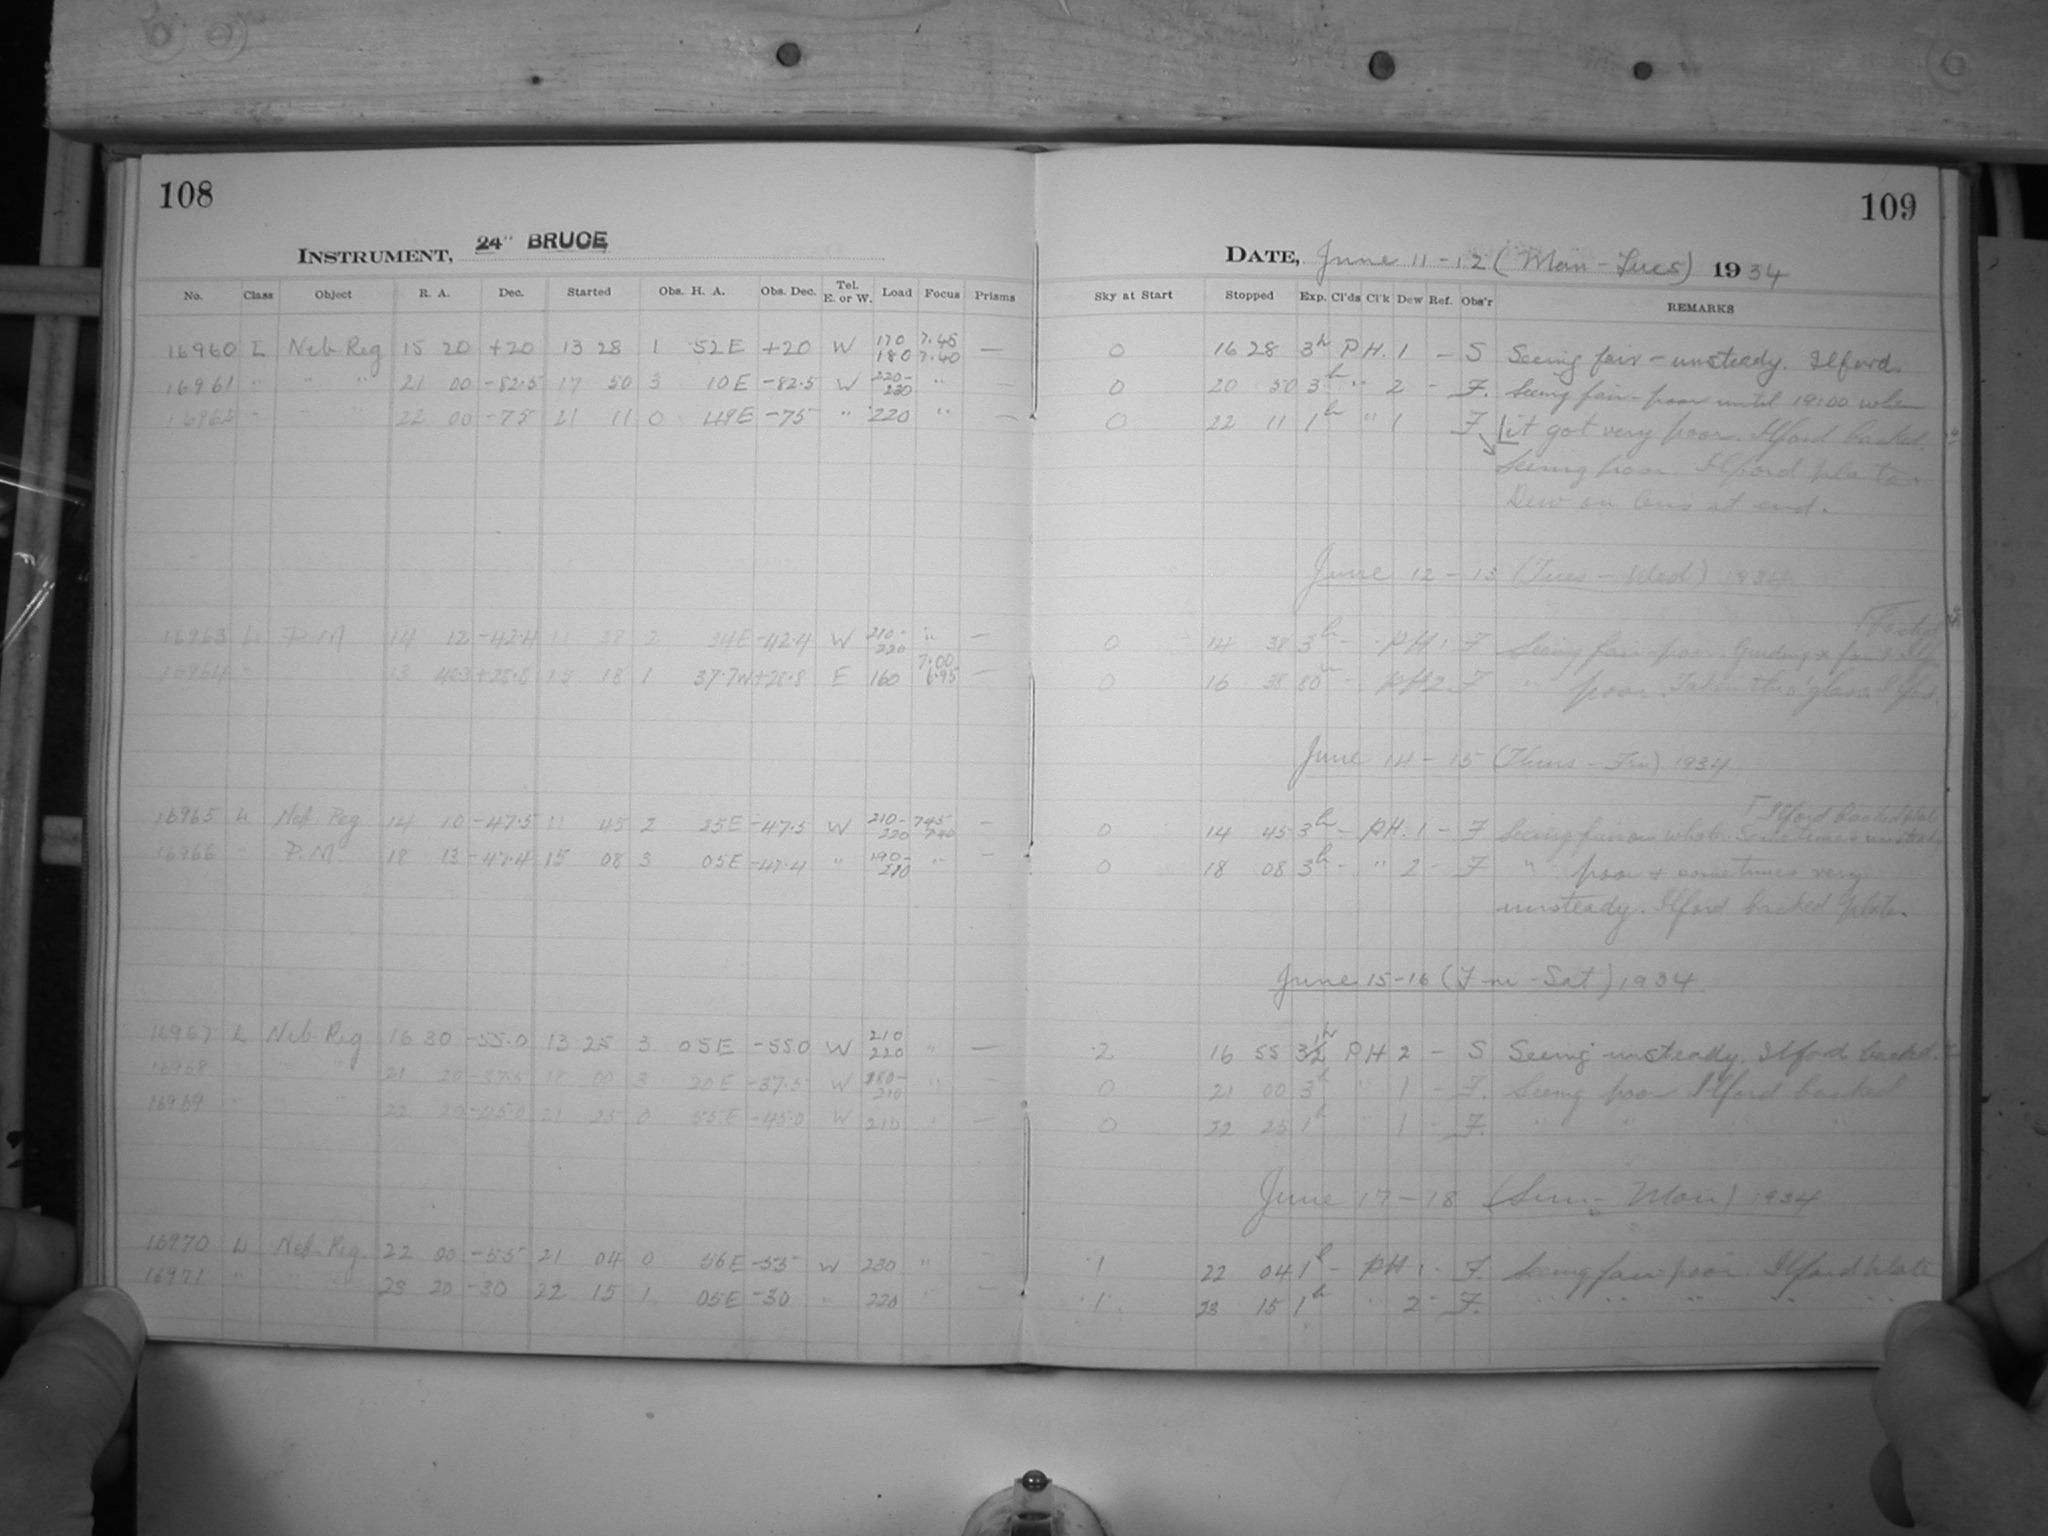 108
109
INSTRUMENT, 24" BRUCE
DATE, June 11-12 (Mon-Tues) 1934
No. Class Object R. A. Dec. Started Obs. H. A. Obs. Dec. Tel. E. or W. Load Focus Prisms Sky at Start Stopped Exp. Cl'ds Cl'k Dew Ref. Obs'r REMARKS
16960 L Neb Reg 15 20 +20 13 28 1 52E +20 W 170 180 7.45 7.40 — 0 16 28 3h PH. 1 - S Seeing fair - unsteady. Ilford.
16961 " " " 21 00 -82.5 17 50 3 10E -82.5 W 220- 230 " — 0 20 50 3h " 2 - F. Seeing fair-poor until 19:00 when
16962 " " 22 00 -75 21 11 0 49E -75 " 220 " — 0 22 11 1h " 1 F it got very poor. Ilford backed.
Seeing poor. Ilford plate.
Dew on lens at end.
June 12-13 (Tues-Wed) 1934
16963 L P.M 14 12 -42.4 11 38 2 34E -42.4 W 210- 220 " — 0 14 38 3h - PH 1 F Seeing fair-poor. Guiding
16964 13 +28.8 15 18 1 37.7W +28.8 E 160 7.00 6.95 — 0 16 38 80m - PH 2 F " poor. Taken thro' glass.
June 14-15 (Thurs-Fri) 1934
Ilford backed plate
16965 L Neb. Reg 14 10 -47.5 11 45 2 25E -47.5 W 210- 220 7.45 7.40 — 0 14 45 3h - PH. 1 - F Seeing fair on whole. Sometimes unsteady
16966 " P.M 18 13 -47.4 15 08 3 05E -47.4 " 190- 210 " — 0 18 08 3h - " 2 - F " poor & sometimes very
unsteady. Ilford backed plate.
June 15-16 (Fri-Sat) 1934
16967 L Neb Reg 16 30 -55.0 13 25 3 05E -55.0 W 210 220 " — 2 16 55 3½h PH 2 - S Seeing unsteady. Ilford backed.
16968 " " " 21 20 -37.5 18 00 3 20E -37.5 W 180- 210 " — 0 21 00 3h " 1 - F. Seeing poor Ilford backed
16969 " " " 22 20 -45.0 21 25 0 55E -45.0 W 210 " — 0 22 25 1h " 1 - F. " " " "
June 17-18 (Sun-Mon) 1934
16970 L Neb. Reg. 22 00 -55 21 04 0 56E -55 W 230 " 1 22 04 1h - PH 1 - F. Seeing fair-poor. Ilford plate
16971 " " " 23 20 -30 22 15 1 05E -30 " 220 " 1 23 15 1h " 2 - F. " " " " "